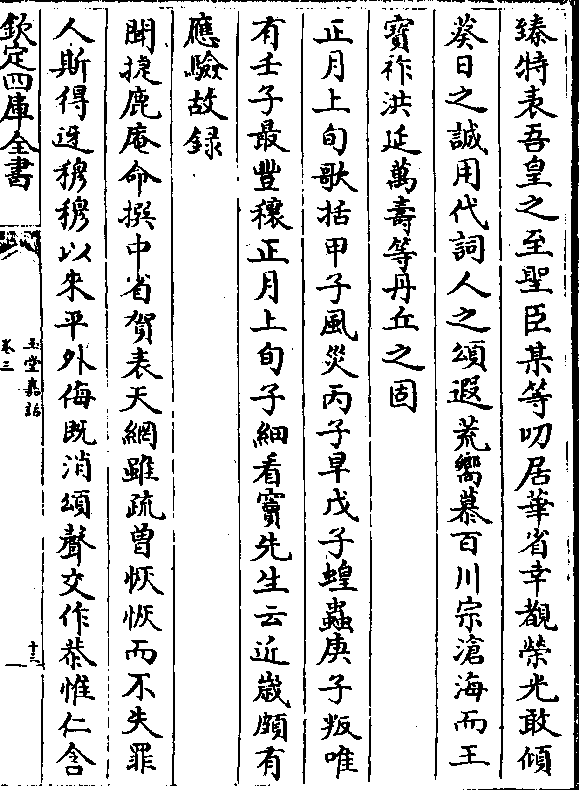 臻特表吾皇之至聖臣某等叨居華省幸覩榮光敢傾
葵日之誠用代詞人之頌遐荒嚮慕百川宗滄海而王
寳祚洪延萬壽等丹丘之固
正月上旬歌括甲子風災丙子旱戊子蝗蟲庚子叛唯
有壬子最豐穰正月上旬子細看竇先生云近嵗頗有
應驗故録
聞捷鹿庵命撰中省賀表天網雖疏曾恢恢而不失罪
人斯得迓穆穆以来平外侮既消頌聲交作恭惟仁含
欽定四庫全書
玉堂嘉話
卷三
十三